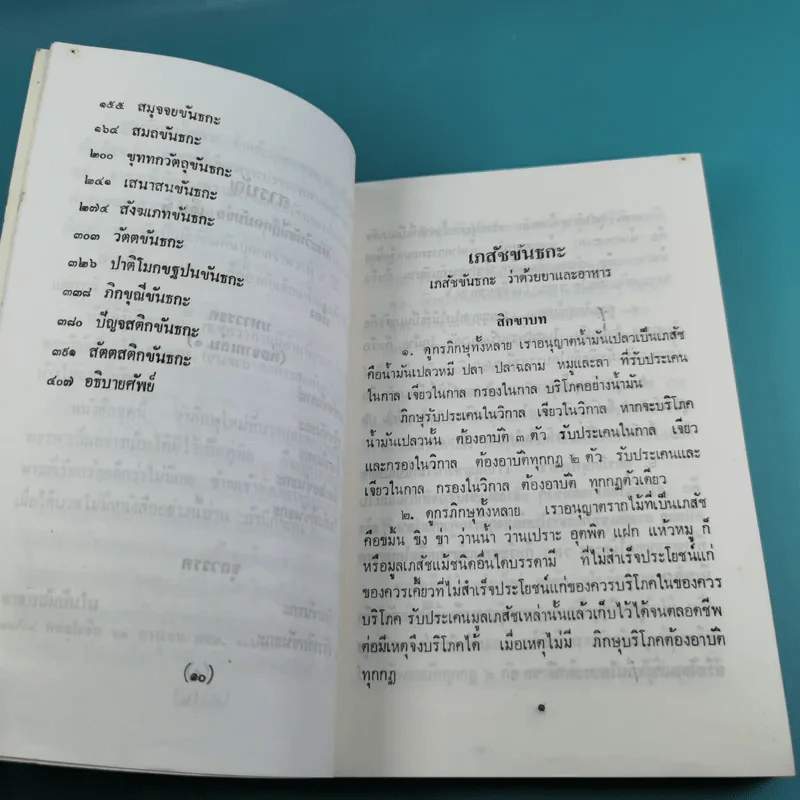 ๑๕๕ สมุจจยขันธกะ
๑๖๔ สมถขันธกะ
๒๐๐ ขุททกวัตถุขันธกะ
๒๔๑ เสนาสนขันธกะ
๒๗๔ สังฆเภทขันธกะ
๓๐๓ วัตตขันธกะ
๓๒๖ ปาติโมกขฐปนขันธกะ
๓๓๘ ภิกขุณีขันธกะ
๓๘๐ ปัญจสติกขันธกะ
๓๙๑ สัตตสติกขันธกะ
๔๐๗ อธิบายศัพย์
(๑๐)
เภสัชขันธกะ
เภสัชขันธกะ ว่าด้วยยาและอาหาร
สิกขาบท
๑. ดูกรภิกษุทั้งหลาย เราอนุญาตน้ำมันเปลวเป็นเภสัช
คือน้ำมันเปลวหมี ปลา ปลาฉลาม หมูและลา ที่รับประเคน
ในกาล เจียวในกาล กรองในกาล บริโภคอย่างน้ำมัน
ภิกษุรับประเคนในวิกาล เจียวในวิกาล หากจะบริโภค
น้ำมันเปลวนั้น ต้องอาบัติ ๓ ตัว รับประเคนในกาล เจียว
และกรองในวิกาล ต้องอาบัติทุกกฏ ๒ ตัว รับประเคนและ
เจียวในกาล กรองในวิกาล ต้องอาบัติ ทุกกฏตัวเดียว
๒. ดูกรภิกษุทั้งหลาย เราอนุญาตรากไม้ที่เป็นเภสัช
คือขมิ้น ขิง ข่า ว่านน้ำ ว่านเปราะ อุตพิต แฝก แห้วหมู ก็
หรือมูลเภสัชแม้ชนิดอื่นใดบรรดามี ที่ไม่สำเร็จประโยชน์แก่
ของควรเคี้ยวที่ไม่สำเร็จประโยชน์แก่ของควรบริโภคในของควร
บริโภค รับประเคนมูลเภสัชเหล่านั้นแล้วเก็บไว้ได้จนตลอดชีพ
ต่อมีเหตุจึงบริโภคได้ เมื่อเหตุไม่มี ภิกษุบริโภคต้องอาบัติ
ทุกกฏ
๑